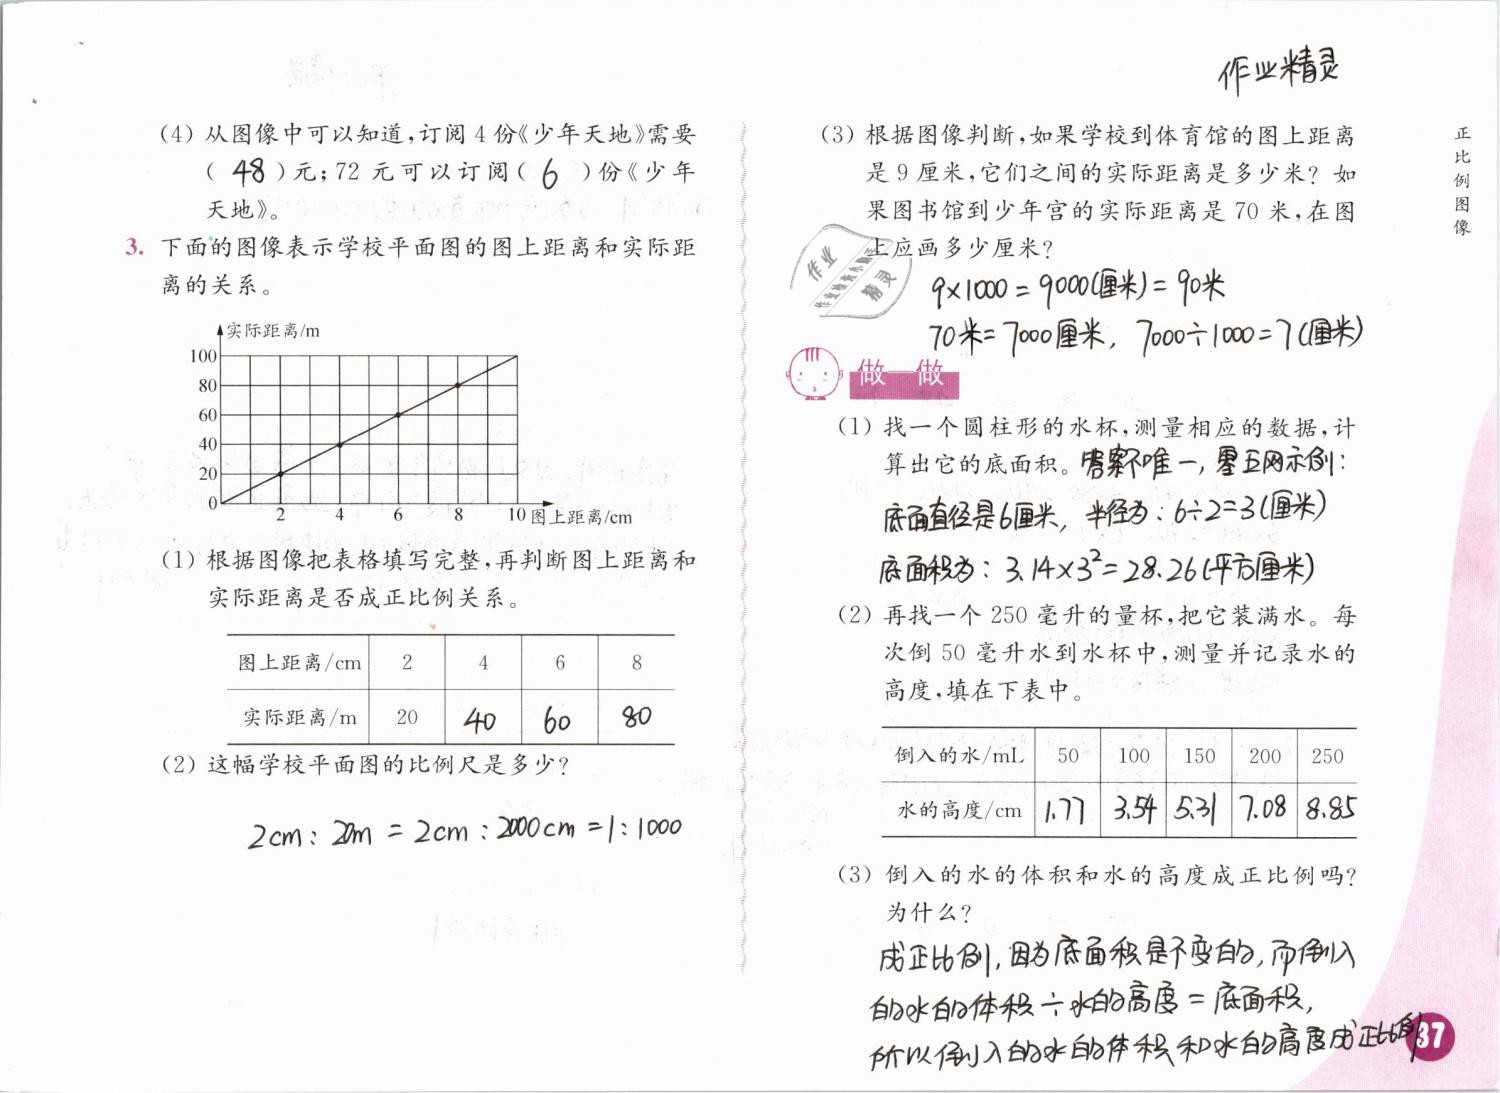 作业精灵
正比例图像
(4) 从图像中可以知道,订阅 4 份《少年天地》需要
( 48 )元;72 元可以订阅( 6 )份《少年
天地》。
3. 下面的图像表示学校平面图的图上距离和实际距
离的关系。
实际距离/m
100
80
60
40
20
0
2 4 6 8 10 图上距离/cm
(1) 根据图像把表格填写完整,再判断图上距离和
实际距离是否成正比例关系。
图上距离/cm 2 4 6 8
实际距离/m 20 40 60 80
(2) 这幅学校平面图的比例尺是多少?
2cm : 20m = 2cm : 2000cm = 1 : 1000
(3) 根据图像判断,如果学校到体育馆的图上距离
是 9 厘米,它们之间的实际距离是多少米? 如
果图书馆到少年宫的实际距离是 70 米,在图
上应画多少厘米?
作业
精灵
9×1000 = 9000(厘米) = 90米
70米= 7000厘米, 7000÷1000=7(厘米)
做一做
(1) 找一个圆柱形的水杯,测量相应的数据,计
算出它的底面积。答案不唯一,零五网示例:
底面直径是6厘米, 半径为: 6÷2=3(厘米)
底面积为: 3.14×3²=28.26(平方厘米)
(2) 再找一个 250 毫升的量杯,把它装满水。每
次倒 50 毫升水到水杯中,测量并记录水的
高度,填在下表中。
倒入的水/mL 50 100 150 200 250
水的高度/cm 1.77 3.54 5.31 7.08 8.85
(3) 倒入的水的体积和水的高度成正比例吗?
为什么?
成正比例,因为底面积是不变的,而倒入
的水的体积÷水的高度=底面积,
所以倒入的水的体积和水的高度成正比例
37